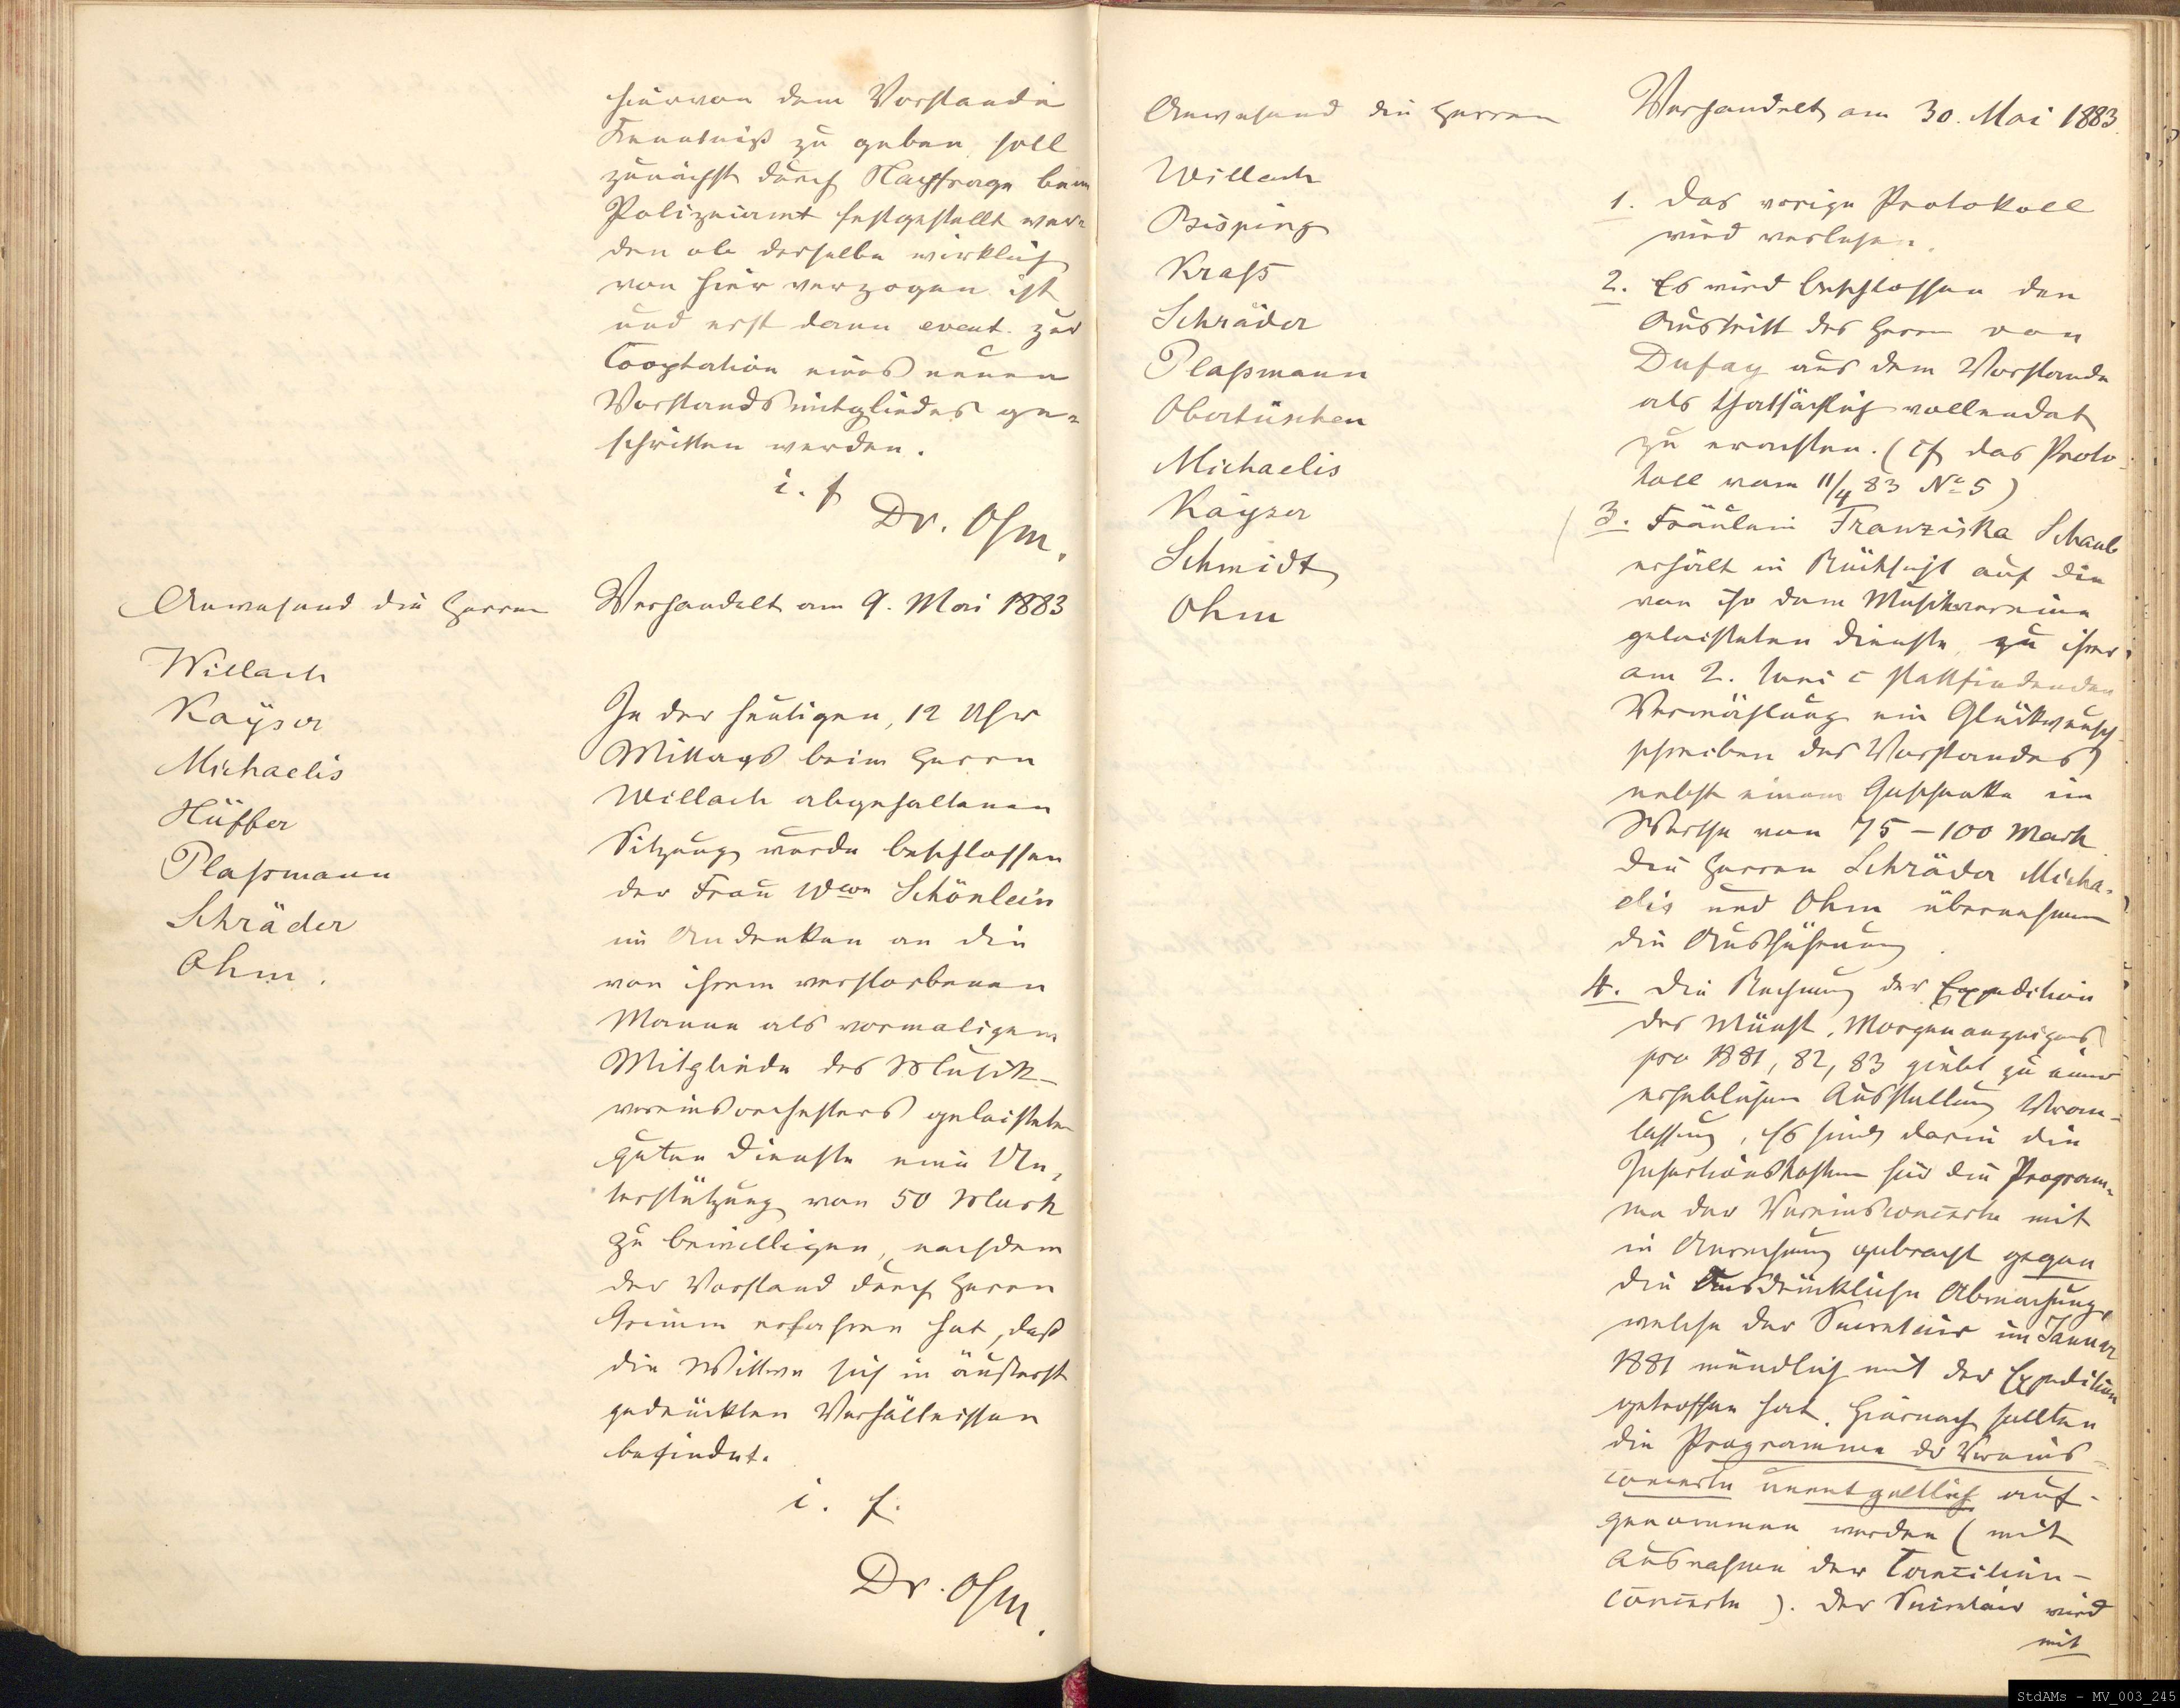 hiervon dem Vorstande
Kenntniß zu geben, soll
zunächst durch Nachfrage beim
Polizeiamt festgestellt wer-
den ob derselbe wirklich
von hier verzogen ist
und erst dann event. zur
Cooptation eines neuen
Vorstandsmitgliedes ge-
schritten werden.
i. f.
Dr. Ohm.
Anwesend die Herren
Willach
Kayser
Michaelis
Hüffer
Plaßmann
Schräder
Ohm.
Verhandelt am 9. Mai 1883
In der heutigen, 12 Uhr
Mittags beim Herrn
Willach abgehaltenen
Sitzung wurde beschlossen
der Frau Wwe Schönlein
im Andenken an die
von ihrem verstorbenen
Manne als vormaligem
Mitgliede des Musik-
vereinsorchesters geleisteten
guten Dienste eine Un-
terstützung von 50 Mark
zu bewilligen, nachdem
der Vorstand durch Herrn
Grimm erfahren hat, daß
die Wittwe sich in äußerst
gedrückten Verhältnissen
befindet.
i. f.
Dr. Ohm.
Anwesend die Herren
Willach
Bisping
Kraß
Schräder
Plaßmann
Obertüschen
Michaelis
Kayser
Schmidt
Ohm
Verhandelt am 30. Mai 1883.
1. Das vorige Protokoll
wird verlesen.
2. Es wird beschlossen den
Austritt des Herrn von
Dufay aus dem Vorstande
als thatsächlich vollendet
zu erachten. (cf das Proto-
koll vom 11/4 83 No 5)
3. Fräulein Franziska Schaub
erhält in Rücksicht auf die
von ihr dem Musikvereine
geleisteten Dienste, zu ihrer
am 2. Juni c stattfindenden
Vermählung ein Glückwunsch-
schreiben des Vorstandes
nebst einem Geschenke im
Werthe von 75–100 Mark.
Die Herren Schräder Micha-
elis und Ohm übernehmen
die Ausführung.
4. Die Rechnung der Expedition
des Münst. Morgenanzeigers
pro 1881, 82, 83 giebt zu einer
erheblichen Ausstellung Veran-
lassung, Es sind darin die
Insertionskosten für die Program-
me der Vereinsconcerte mit
in Anrechnung gebracht gegen
die ausdrückliche Abmachung,
welche der Secretair im Januar
1881 mündlich mit der Expedition
getroffen hat. Hiernach sollten
die Programme der Vereins-
concerte unentgeltlich auf-
genommen werden (mit
Ausnahme der Caecilien-
concerte). Der Secretair wird
mit
StdAMs - MV_003_245